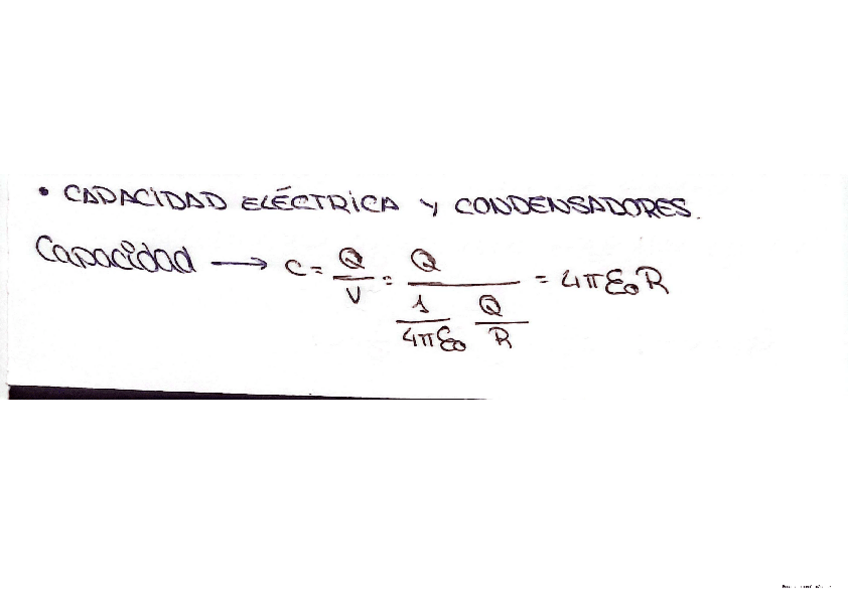 • CAPACIDAD ELÉCTRICA Y CONDENSADORES.
Capacidad → C = Q/V = Q / (1/4πε₀ Q/R) = 4πε₀R